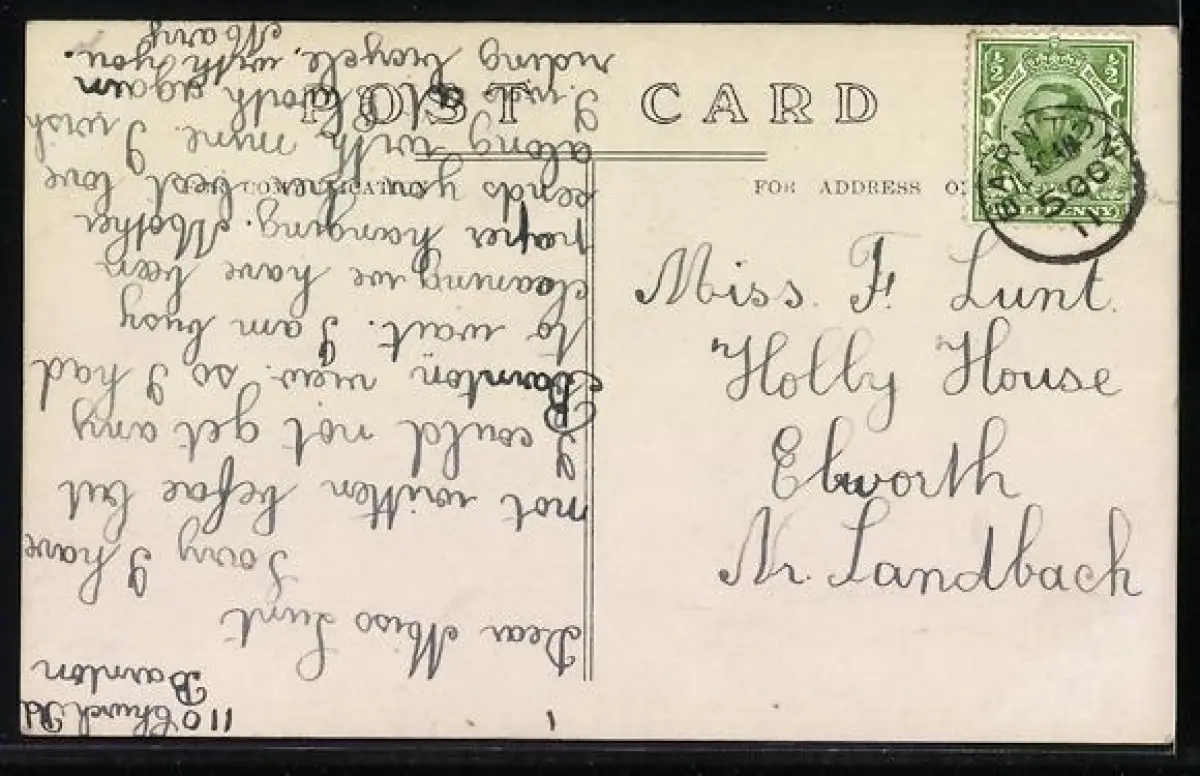 POST CARD
FOR ADDRESS ONLY
½ ½
HALFPENNY
BARNTON
5 OC
11
Miss. F. Lunt.
Holly House
Elworth
Nr. Sandbach
110 Church Rd
Barnton
Dear Miss Lunt
Sorry I have
not written before but
I could not get any
Barnton view. so I had
to wait. I am busy
cleaning we have been
paper hanging. Mother
sends you her best love
along with mine. I wish
I was at Elworth again
riding bicycle. with you.
Mary